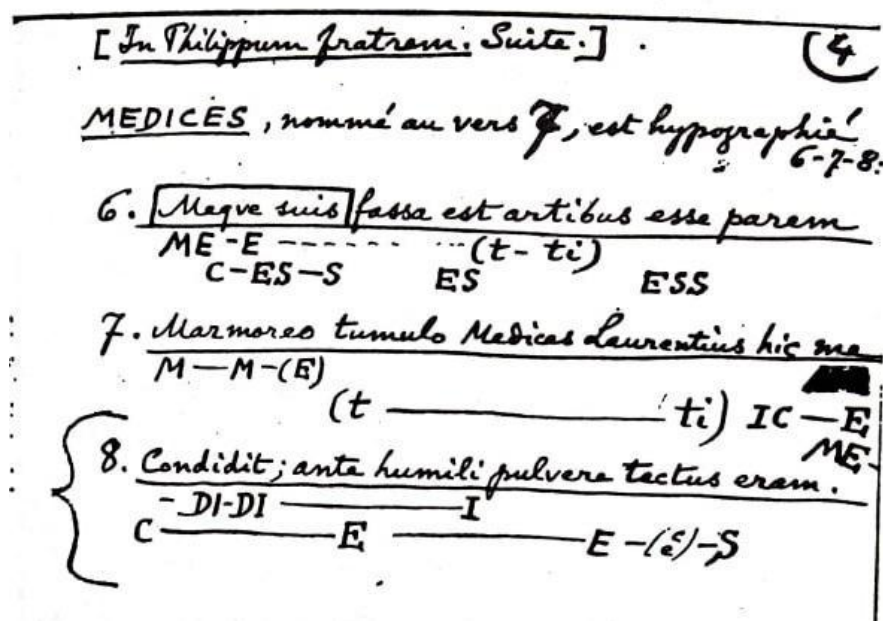 [In Philippum fratrem. Suite.] . 4
MEDICES, nommé au vers 7, est hypographié
6-7-8:
6. Meque suis fassa est artibus esse parem
ME-E ------ ···(t-ti)
C-ES-S ES ESS
7. Marmoreo tumulo Medices Laurentius hic me
M—M-(E)
(t ——— ti) IC—E
ME-
8. Condidit; ante humili pulvere tectus eram.
-DI-DI ———I
C———E ———E-(c/e)-S